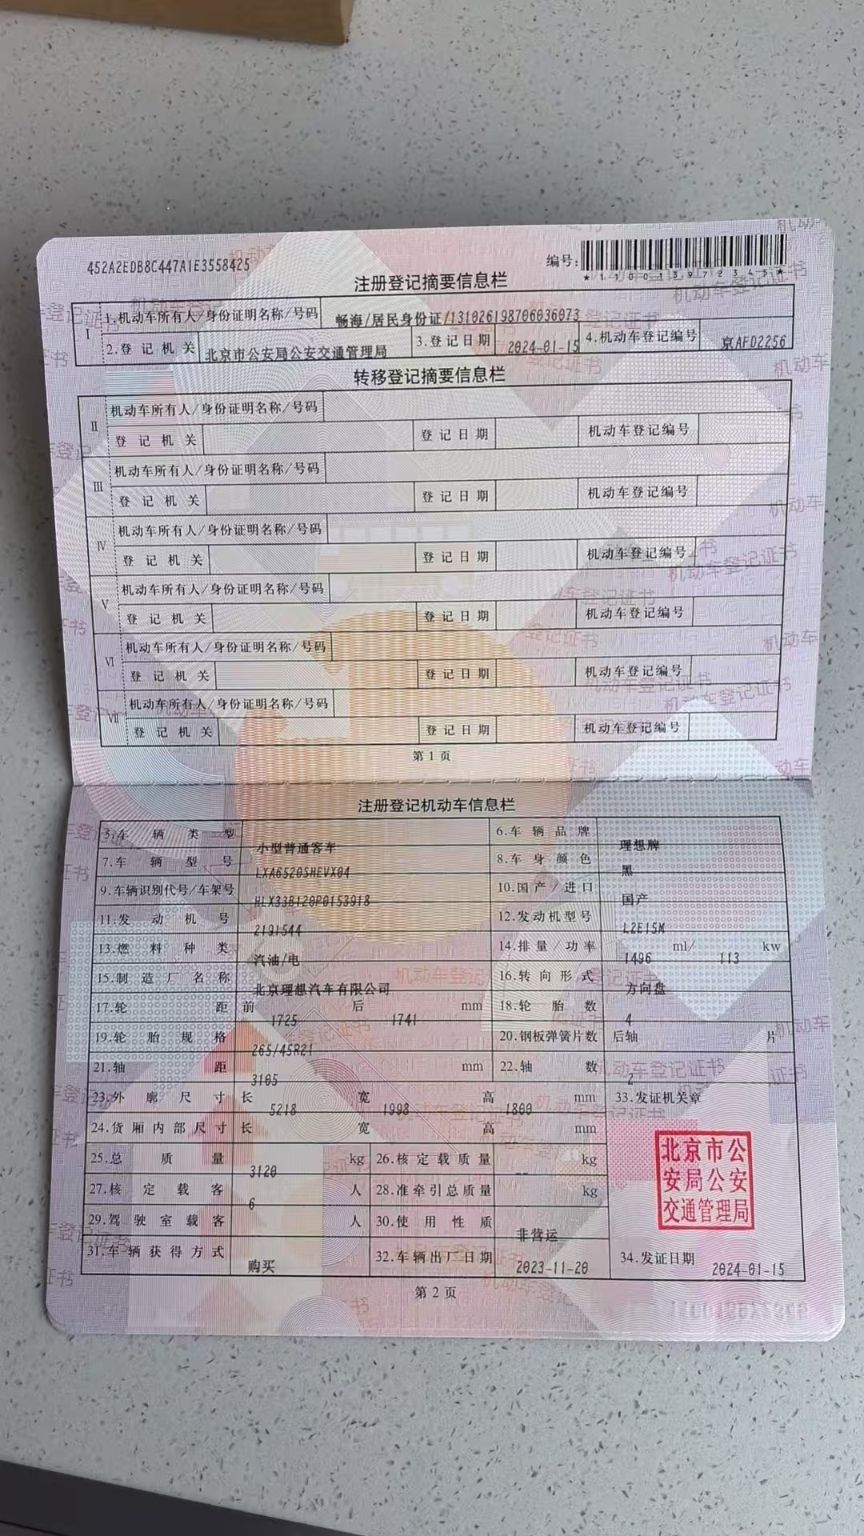 452A2EDB8C447A1E3558425
编号:
*110013972345*
注册登记摘要信息栏
I 1.机动车所有人/身份证明名称/号码 畅海/居民身份证/131026198706036073
2.登记机关 北京市公安局公安交通管理局 3.登记日期 2024-01-15 4.机动车登记编号 京AFD2256
转移登记摘要信息栏
II 机动车所有人/身份证明名称/号码
登记机关 登记日期 机动车登记编号
III 机动车所有人/身份证明名称/号码
登记机关 登记日期 机动车登记编号
IV 机动车所有人/身份证明名称/号码
登记机关 登记日期 机动车登记编号
V 机动车所有人/身份证明名称/号码
登记机关 登记日期 机动车登记编号
VI 机动车所有人/身份证明名称/号码
登记机关 登记日期 机动车登记编号
VII 机动车所有人/身份证明名称/号码
登记机关 登记日期 机动车登记编号
第1页
注册登记机动车信息栏
5.车辆类型 小型普通客车 6.车辆品牌 理想牌
7.车辆型号 LXA6520SHEVX04 8.车身颜色 黑
9.车辆识别代号/车架号 HLX33B120P0153918 10.国产/进口 国产
11.发动机号 2191544 12.发动机型号 L2E15M
13.燃料种类 汽油/电 14.排量/功率 1496 ml/ 113 kw
15.制造厂名称 北京理想汽车有限公司 16.转向形式 方向盘
17.轮距 前 1725 后 1741 mm 18.轮胎数 4
19.轮胎规格 265/45R21 20.钢板弹簧片数 后轴 片
21.轴距 3105 mm 22.轴数 2
23.外廓尺寸 长 5218 宽 1998 高 1800 mm 33.发证机关章
24.货厢内部尺寸 长 宽 高 mm
25.总质量 3120 kg 26.核定载质量 -- kg
27.核定载客 6 人 28.准牵引总质量 kg
29.驾驶室载客 人 30.使用性质 非营运
31.车辆获得方式 购买 32.车辆出厂日期 2023-11-20 34.发证日期 2024-01-15
北京市公
安局公安
交通管理局
第2页